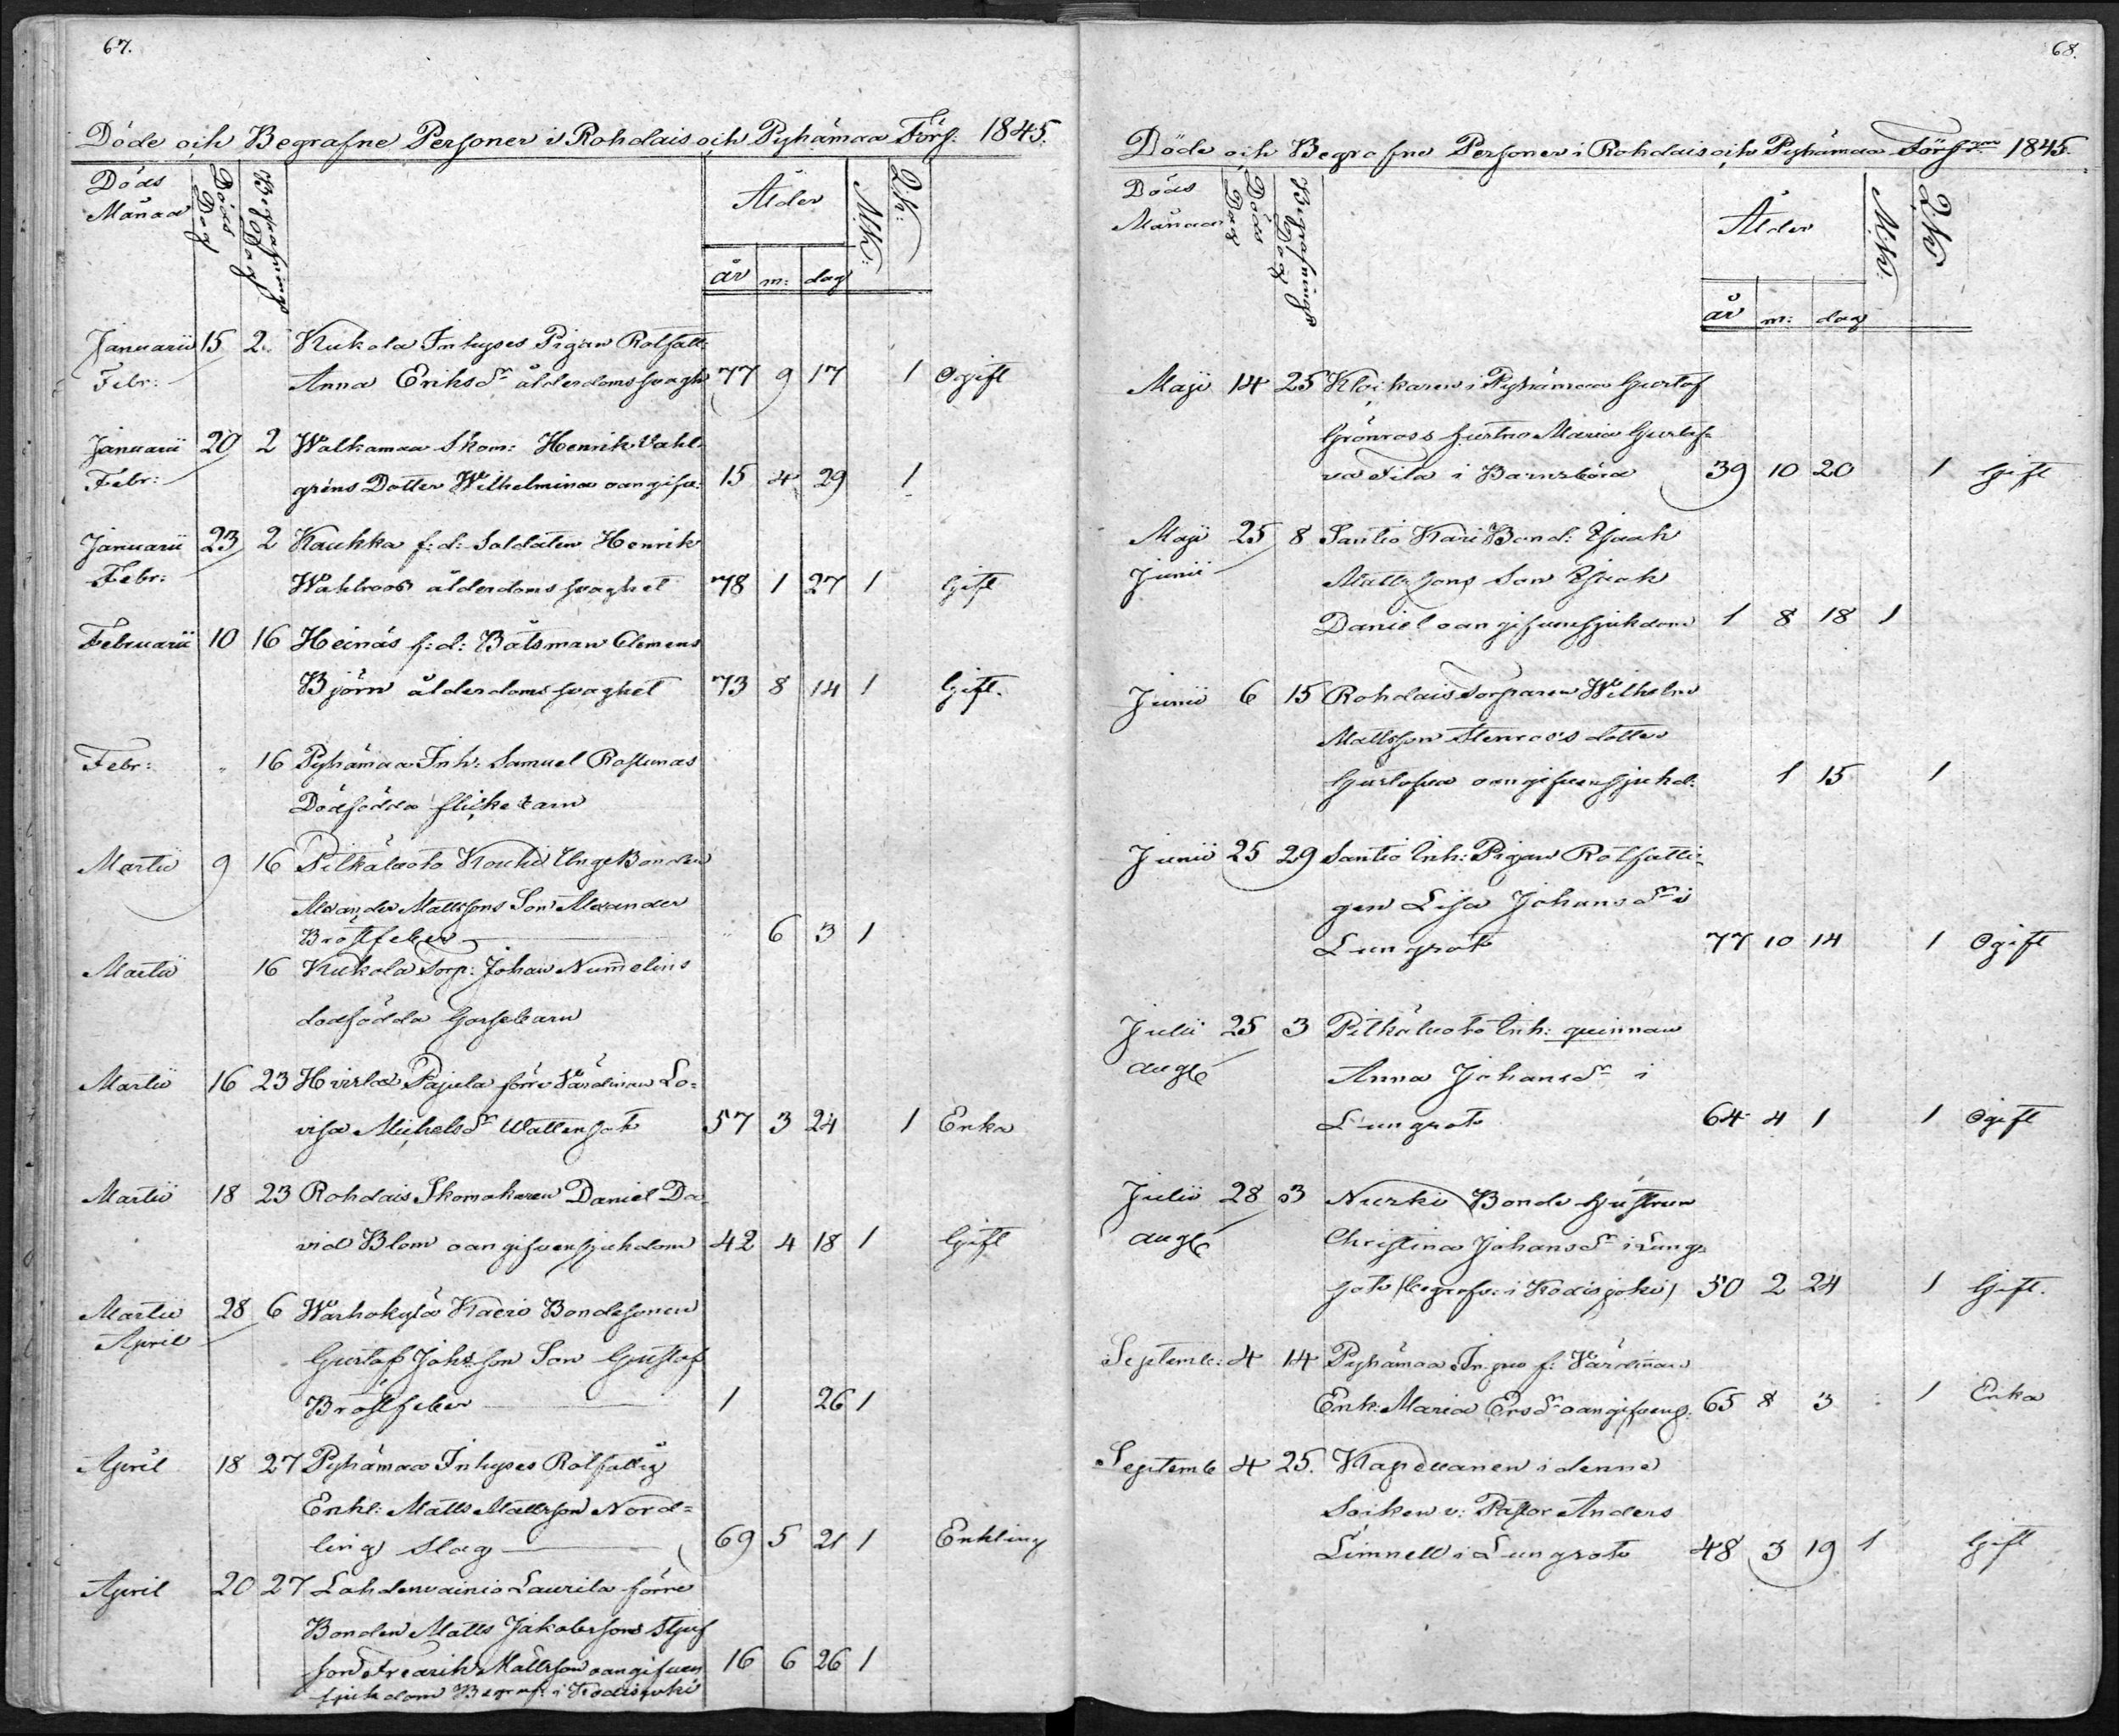 67.
Döde och Begrafne Personer i Rohdais och Pyhämaa Förs: 1845.
Döds Månad
Döds Dag
Begrafnings Dag
Ålder
år m: dag
M.K:
Q.K:
Januarii 15 2. Kukola Inhyses Pigan Rotfatt:
Febr: Anna Eriksdr ålderdomssvagh 77 9 17 1 Ogift
Januarii 20 2 Walkamaa Skom: Henrik Vahl-
Febr: gréns Dotter Wilhelmina oangifv: 15 4 29 1
Januarii 23 2 Kaukka f:d: Soldaten Henrik
Febr: Wahlroos ålderdomssvaghet 78 1 27 1 Gift
Februarii 10 16 Heinäs f:d: Båtsman Clemens
Björn ålderdomssvaghet 73 8 14 1 Gift.
Febr: " 16 Pyhämaa Inh: Samuel Rostunas
Dödfödda flickebarn
Martii 9 16 Pitkäluoto Kouhi Unge Bonden
Alexander Mattssons Son Alexander
Bröstfeber " 6 3 1
Martii 16 Kukola Torp: Johan Numelins
dödfödda Gossebarn
Martii 16 23 Hvirla Pajula förre Värdinnan Lo-
visa Michelsdr Wattensot 57 3 24 1 Enka
Martii 18 23 Rohdais Skomakaren Daniel Da-
vid Blom oangifven sjukdom 42 4 18 1 Gift
Martii 28 6 Warhokylä Kaeri Bondesonen
April Gustaf Johsson Son Gustaf
Bröstfeber 1 26 1
April 18 27 Pyhämaa Inhyses Rotfattig
Enkl: Matts Mattsson Nord-
ling Slag 69 5 21 1 Enkling
April 20 27 Lahdenvainio Laurila förre
Bonden Matts Jakobssons Styf
son Fredrik Mattsson oangifven 16 6 26 1
sjukdom Begraf: i Kodisjoki
68.
Döde och Begrafne Personer i Rohdais och Pyhämaa Försgne 1845.
Döds Månad
Döds Dag
Begrafnings Dag
Ålder
år m: dag
M.K:
Q.K
Maji 14 25 Klockaren i Pyhämaa Gustaf
Grönroos hustru Maria Gustaf-
va Fila i Barnsbörd 39 10 20 1 Gift
Maji 25 8 Santio Kari Bond: Isaak
Junii Mattssons Son Isaak
Daniel oangifven sjukdom 1 8 18 1
Junii 6 15 Rohdais Torparen Wilhelm
Mattsson Stenroos dotter
Gustafva oangifven sjukd: 1 15 1
Junii 25 29 Santio Inh: Pigan Rotfatti-
gen Lisa Johansdr i
Lungsot 77 10 14 1 Ogift
Julii 25 3 Pitkäluoto Inh: quinnan
Aug: Anna Johansdr i
Lungsot 64 4 1 1 Ogift
Julii 28 3 Nurki Bonde Hustrun
Aug: Christina Johansdr i Lung-
sot (begrafv: i Kodisjoki) 50 2 24 1 Gift.
Septemb: 4 14 Pyhämaa f: Värdinnan
Enk: Maria Ersdr oangifven s: 65 8 3 1 Enka
Septemb 4 25. Kapellanen i denne
Socken v: Pastor Anders
Limnell i Lungsot 48 3 19 1 Gift